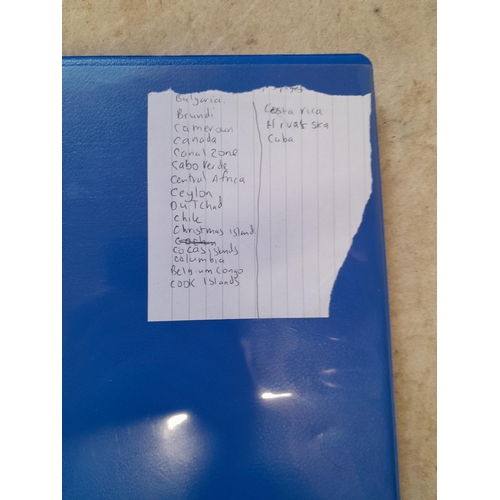 Bulgaria
Brundi
Cameroun
Canada
Canal Zone
Cabo Verde
Central Africa
Ceylon
DU Tchad
Chile
Christmas island
Cocas islands
Columbia
Belgium Congo
COOK Islands
Costa rica
Hrvatska
Cuba